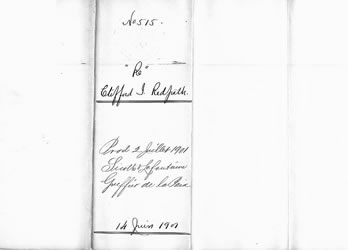 No 515.
"Re"
Clifford J. Redpath.
Prod 2 Juillet 1901
Sicotte & Lafontaine
Greffier de la Paix
14 Juin 1901